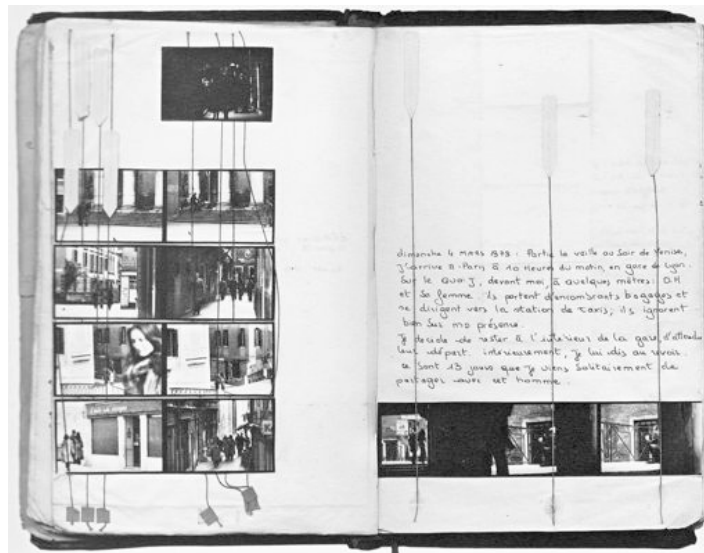 dimanche 4 MARS 1979 : Partie la veille au soir de Venise,
J'arrive à Paris à 10 Heures du matin, en gare de Lyon.
Sur le Quai J, devant moi, à quelques mètres : O.H
et Sa femme. ils portent d'encombrants bagages et
se dirigent vers la station de Taxis; ils ignorent
bien sur ma présence.
Je décide de rester à l'intérieur de la gare, d'attendre
leur départ. intérieurement, Je lui dis au revoir.
ce Sont 13 jours que Je viens Solitairement de
partager avec cet homme.